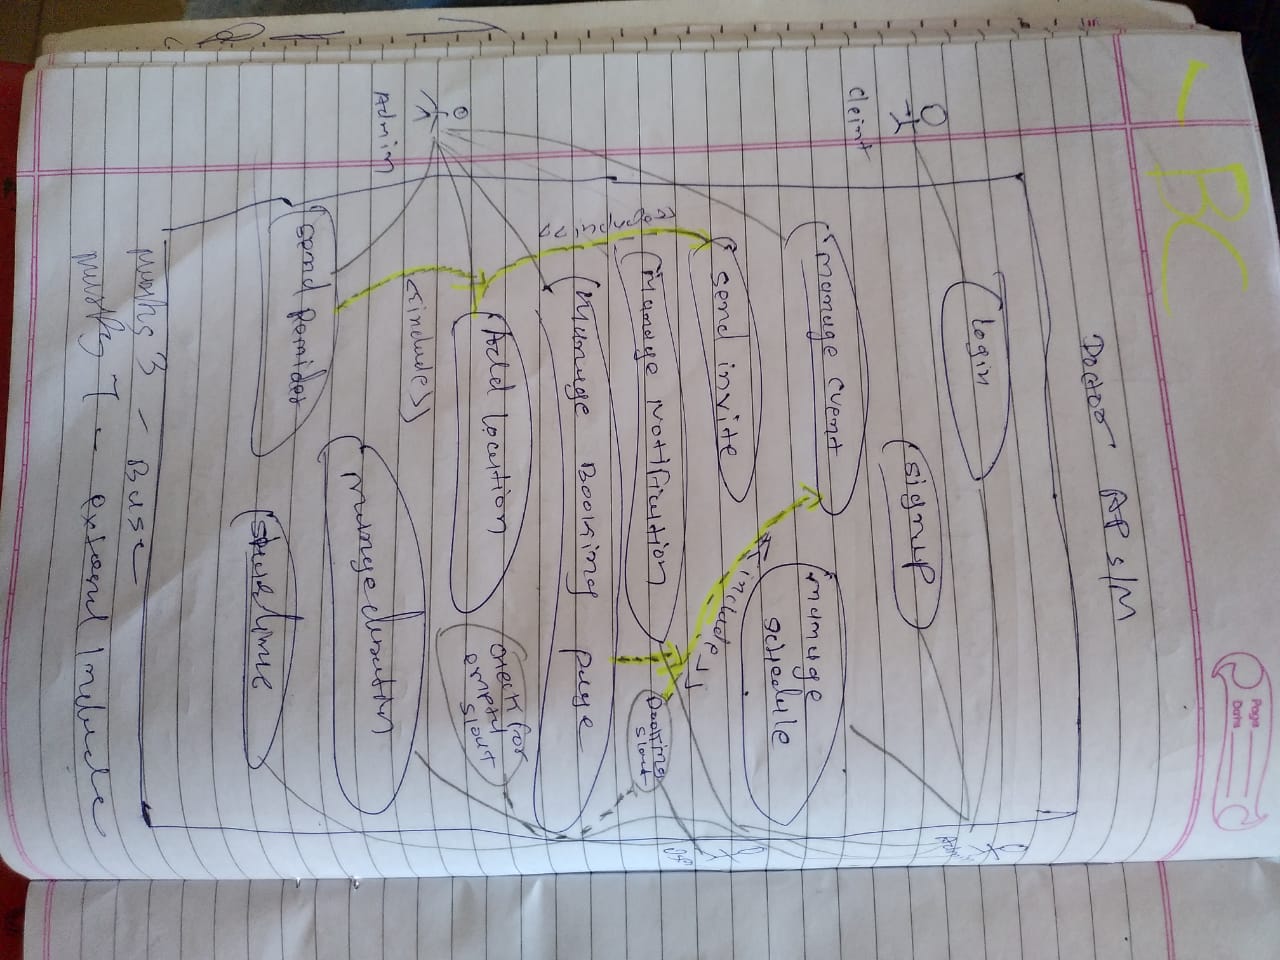 Page
Date
BC
Doctor AP s/M
login
signup
cleint
manage event
manage
schedule
<<include>>
send invite
Manage Notification
Booking
slout
<<include>>
Manage Booking page
Add location
check for
empty
slout
<<include>>
Admin
send Remider
marks 3 - Base
marks 7 - extend Include